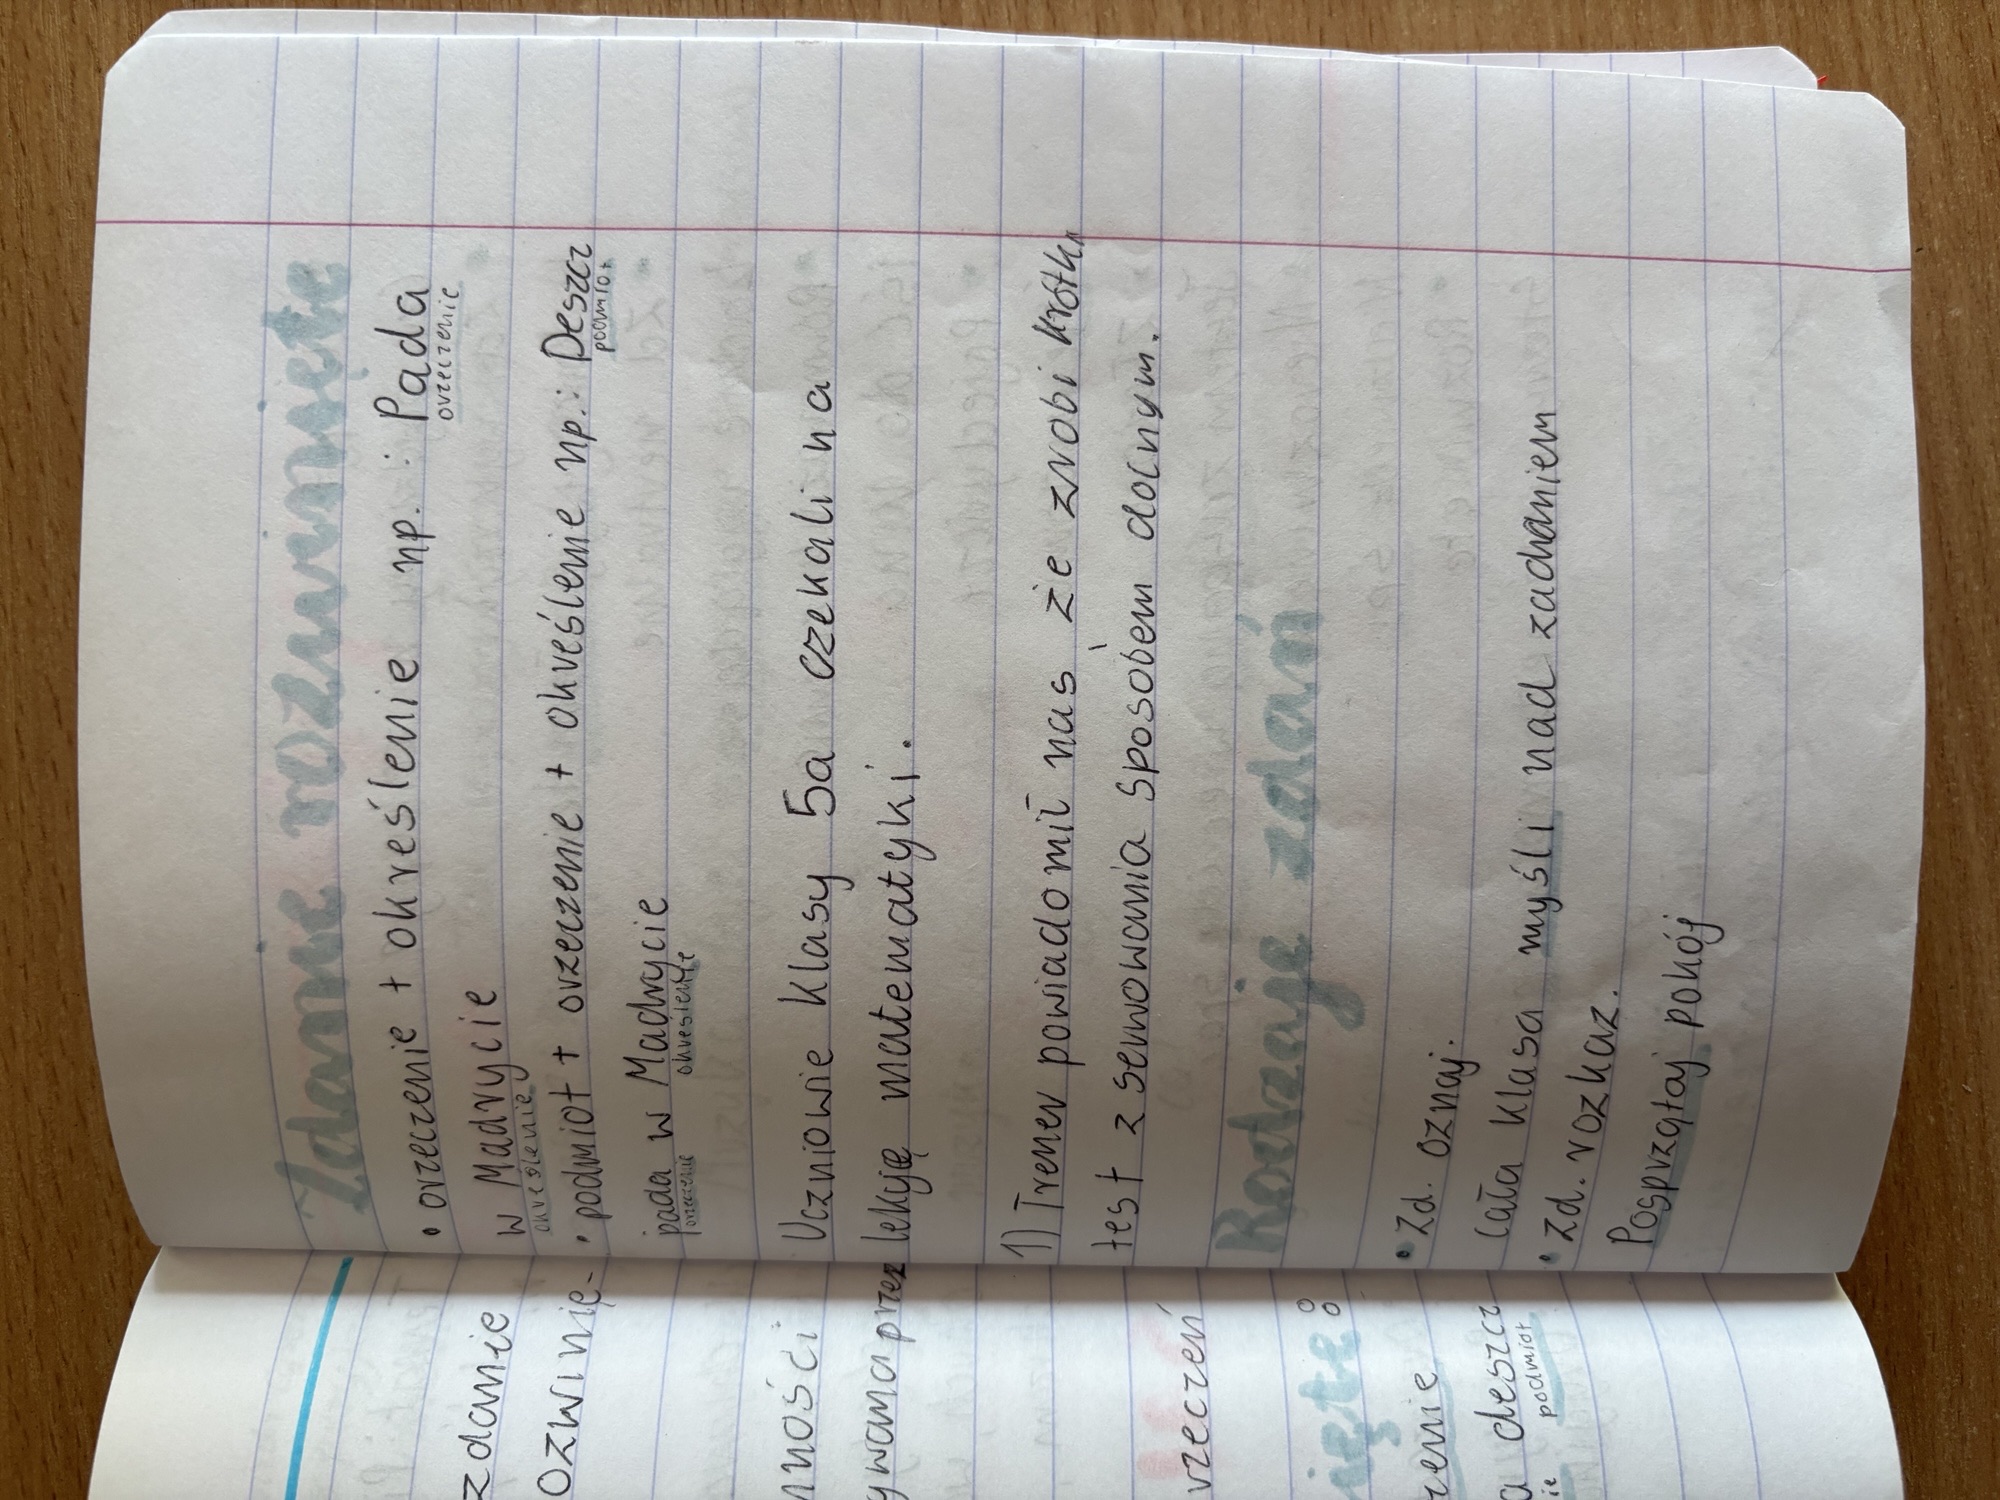 zdanie
ozwinię-
ności
ywana przez
rzeczeń
ięte:
zenie
a deszcz
ie podmiot
Zdanie rozwinięte
• orzeczenie + określenie np.: Pada
orzeczenie
w Madrycie
określenie
• podmiot + orzeczenie + określenie np.: Deszcz
podmiot
pada w Madrycie
orzeczenie określenie
Uczniowie klasy 5a czekali na
lekcję matematyki.
1) Trener powiadomił nas że zrobi
test z serwowania sposobem docnym.
Rodzaje zdań
• Zd. oznaj.
Cała klasa myśli nad zadaniem
• Zd. rozkaz.
Posprzątaj pokój